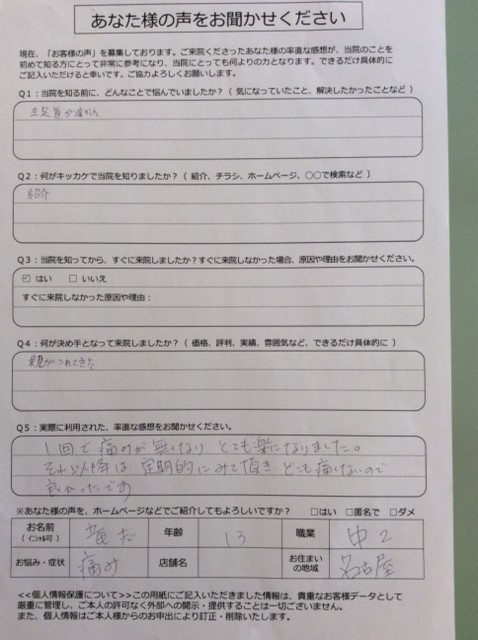 あなた様の声をお聞かせください
現在、「お客様の声」を募集しております。ご来院くださったあなた様の率直な感想が、当院のことを
初めて知る方にとって非常に参考になり、当院にとっても何よりの力となります。できるだけ具体的に
ご記入いただけると幸いです。ご協力よろしくお願いします。
Q1：当院を知る前に、どんなことで悩んでいましたか？（ 気になっていたこと、解決したかったことなど ）
左足首が痛かった
Q2：何がキッカケで当院を知りましたか？（ 紹介、チラシ、ホームページ、○○で検索など ）
紹介
Q3：当院を知ってから、すぐに来院しましたか？すぐに来院しなかった場合、原因や理由をお聞かせください。
☑ はい □ いいえ
すぐに来院しなかった原因や理由：
Q4：何が決め手となって来院しましたか？（ 価格、評判、実績、雰囲気など、できるだけ具体的に ）
親がつれてきた
Q5：実際に利用された、率直な感想をお聞かせください。
1回で痛みが無くなり とても楽になりました。
それ以降は 定期的にみて頂き、どこも痛くないので
良かったです
※あなた様の声を、ホームページなどでご紹介してもよろしいですか？ □はい □匿名で □ダメ
お名前 年齢 13 職業 中2
（イニシャル可）
お悩み・症状 痛み 店舗名 お住まいの地域 名古屋
<<個人情報保護について>>この用紙にご記入いただきました情報は、貴重なお客様データとして
厳重に管理し、ご本人の許可なく外部への開示・提供することは一切ございません。
また、個人情報はご本人様からのお申出により訂正・削除いたします。